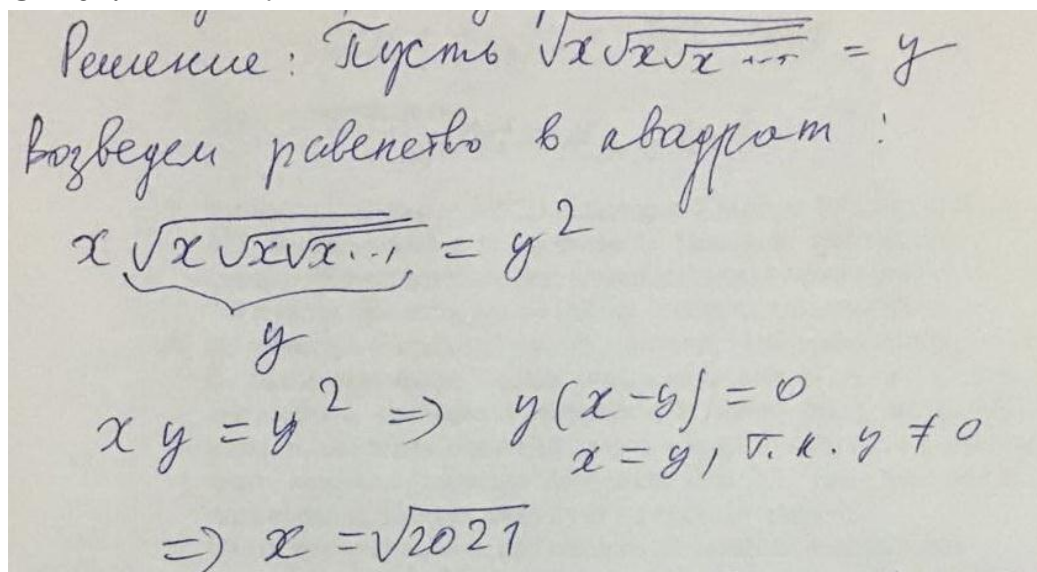 Решение: Пусть √x√x√x... = y
Возведем равенство в квадрат:
x√x√x√x... = y²
y
xy = y² => y(x-y) = 0
x = y, т.к. y ≠ 0
=> x = √2021